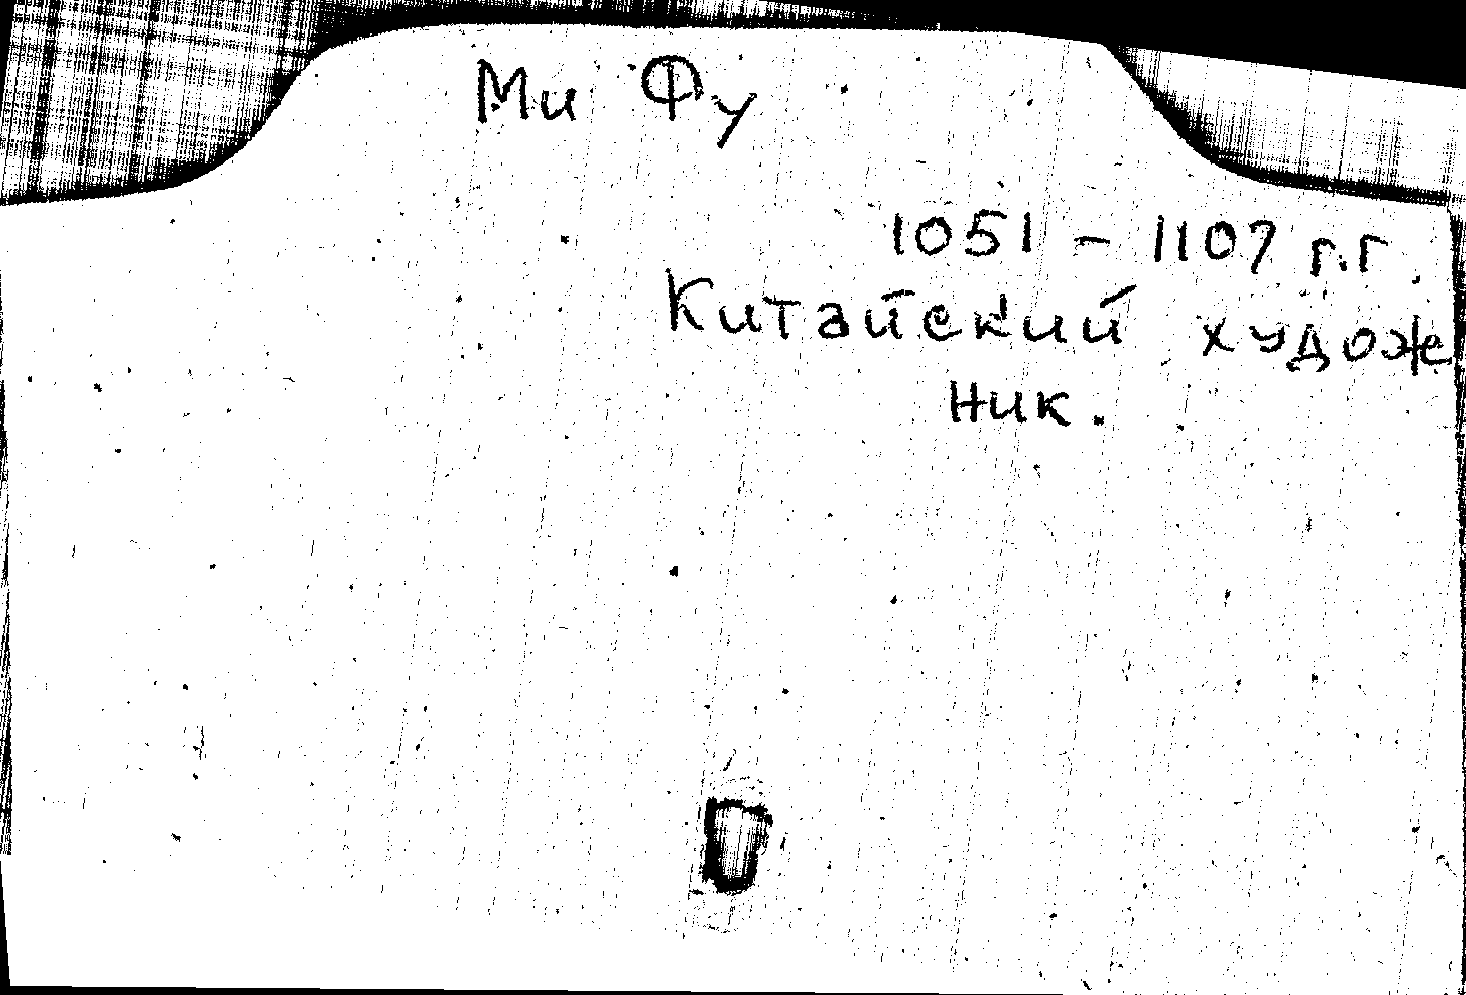 Ми Фу
1051 – 1107 г.г.
Китайский художе
ник.